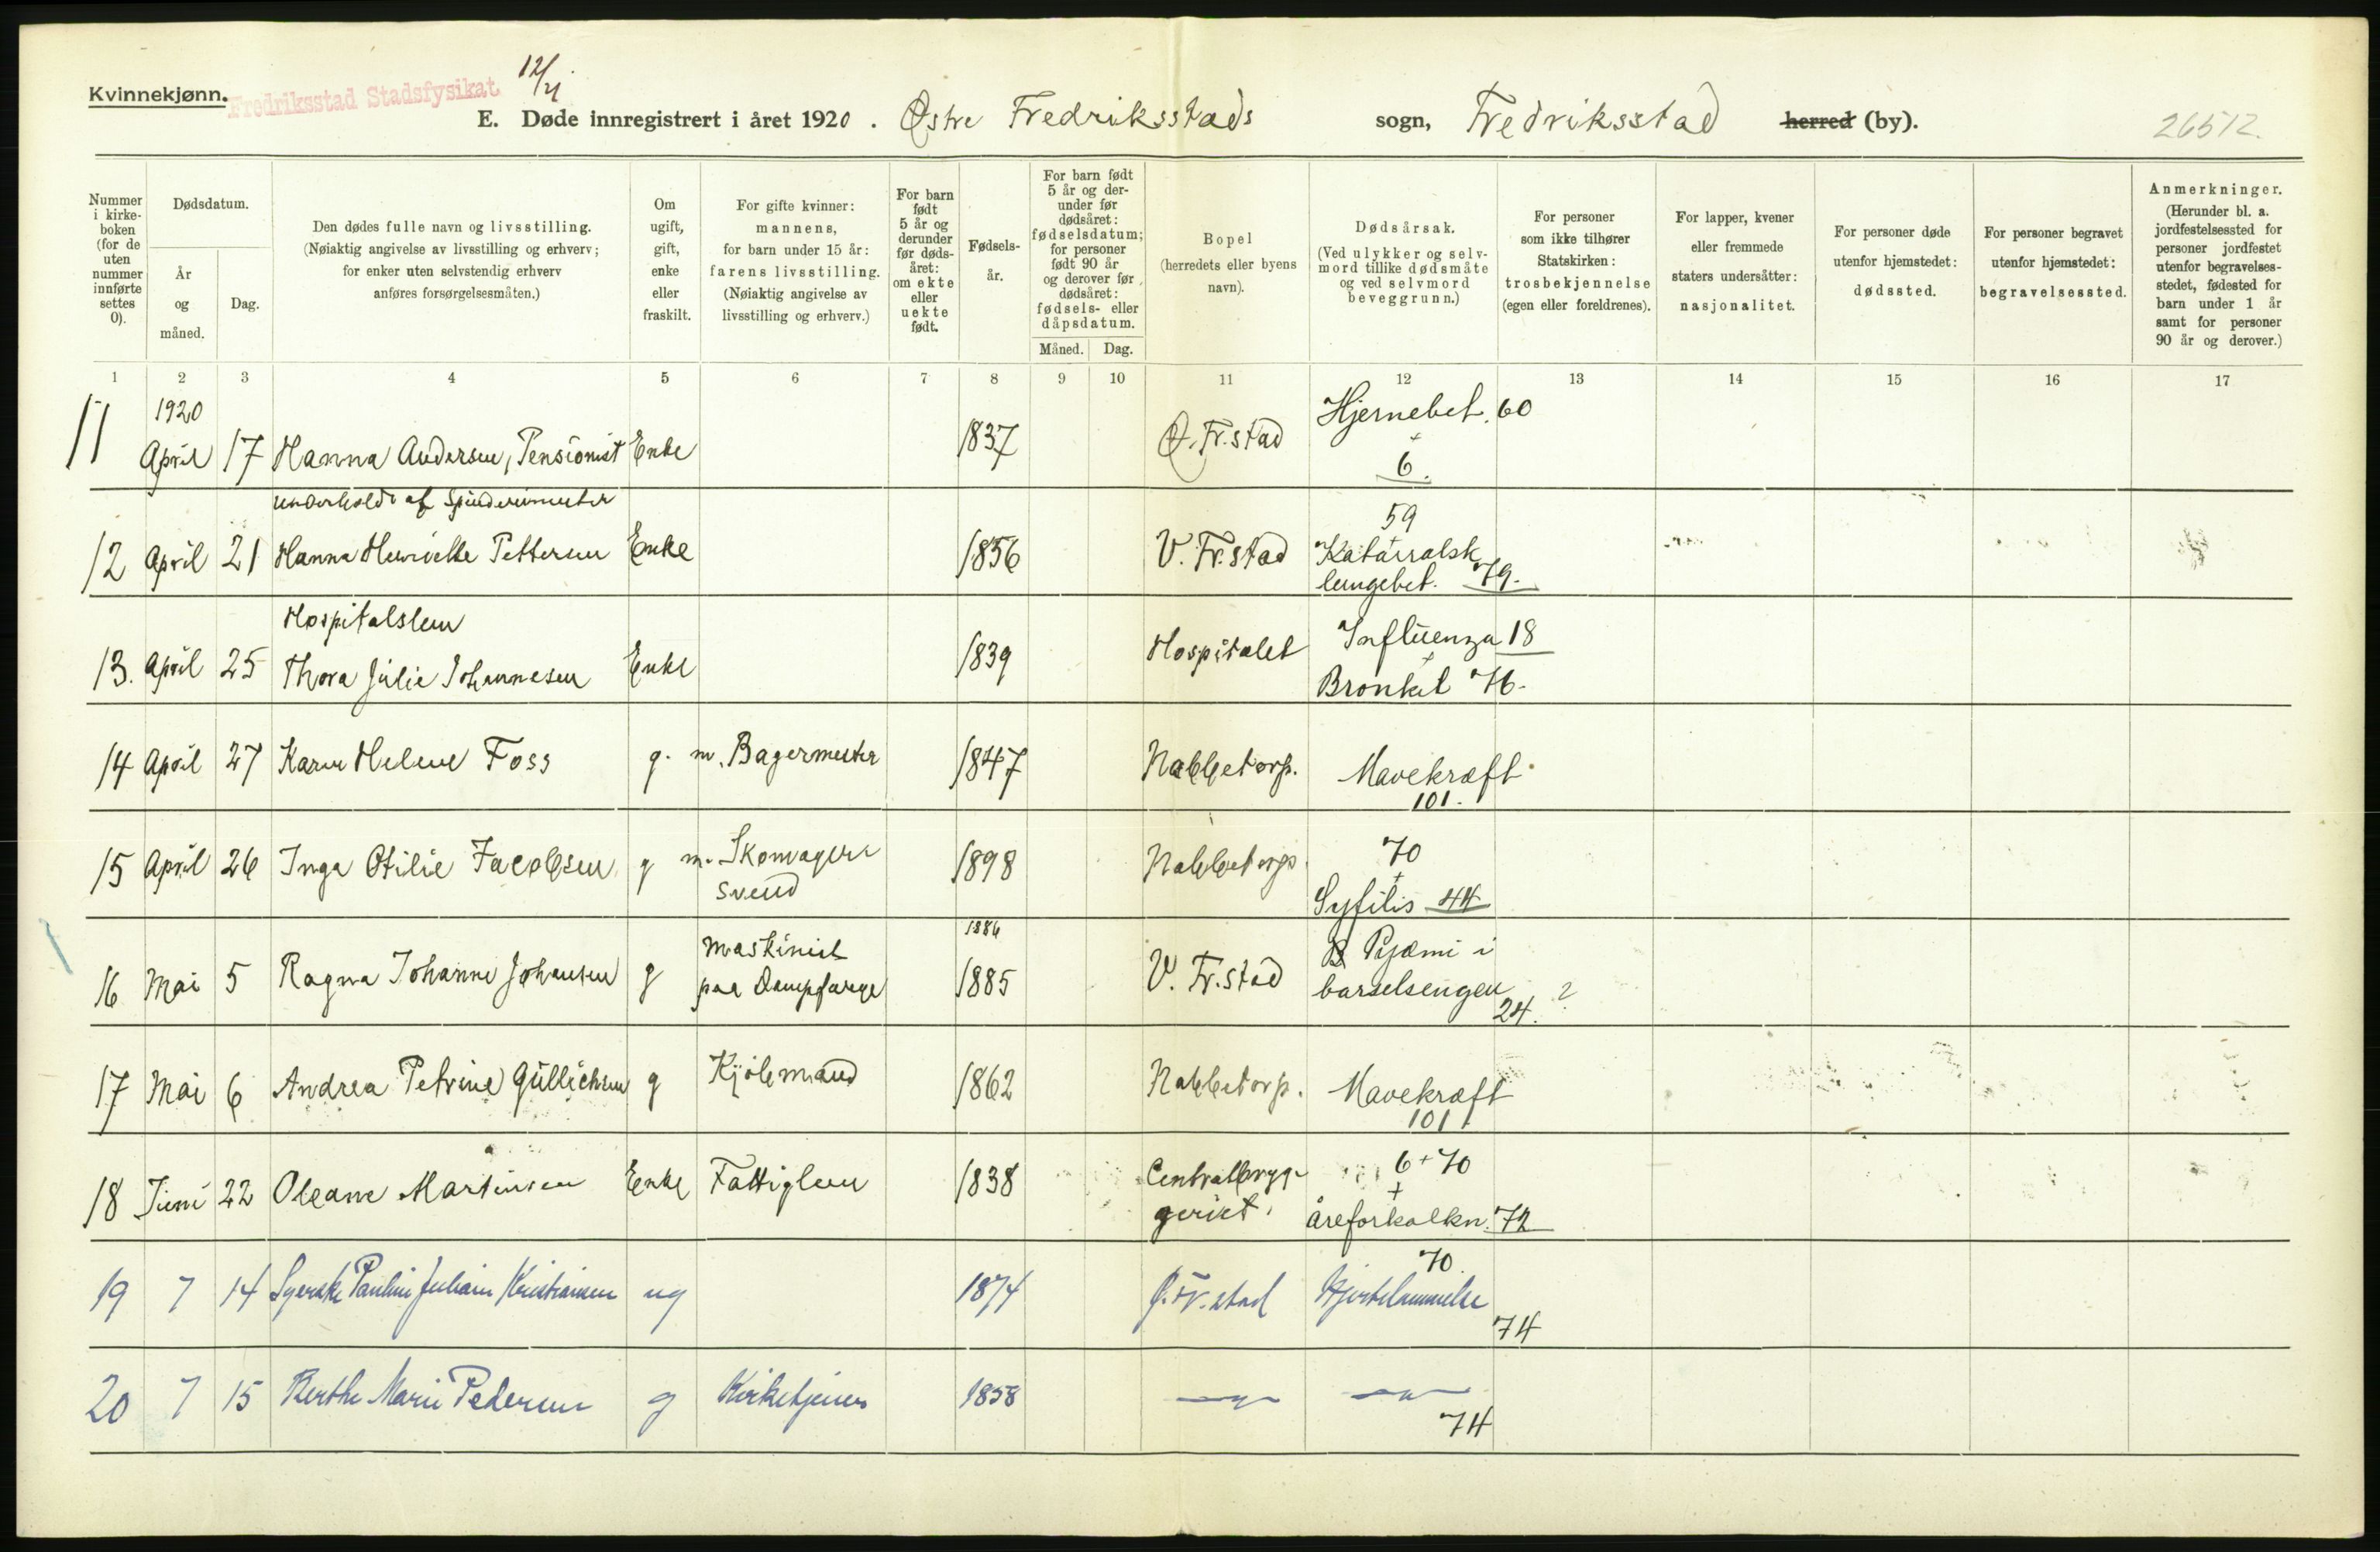 Kvinnekjønn.
Fredriksstad Stadsfysikat
E. Døde innregistrert i året 1920. Østre Fredriksstads sogn, Fredriksstad herred (by).
26512.
Nummer i kirkeboken (for de uten nummer innførte settes 0).
Dødsdatum.
År og måned.
Dag.
Den dødes fulle navn og livsstilling.
(Nøiaktig angivelse av livsstilling og erhverv;
for enker uten selvstendig erhverv
anføres forsørgelsesmåten.)
Om ugift, gift, enke eller fraskilt.
For gifte kvinner:
mannens,
for barn under 15 år:
farens livsstilling.
(Nøiaktig angivelse av
livsstilling og erhverv.)
For barn født 5 år og derunder før dødsåret: om ekte eller uekte født.
Fødselsår.
For barn født 5 år og derunder før dødsåret: fødselsdatum; for personer født 90 år og derover før dødsåret: fødsels- eller dåpsdatum.
Måned. Dag.
Bopel
(herredets eller byens
navn).
Dødsårsak.
(Ved ulykker og selvmord tillike dødsmåte og ved selvmord beveggrunn.)
For personer
som ikke tilhører
Statskirken:
trosbekjennelse
(egen eller foreldrenes).
For lapper, kvener
eller fremmede
staters undersåtter:
nasjonalitet.
For personer døde
utenfor hjemstedet:
dødssted.
For personer begravet
utenfor hjemstedet:
begravelsessted.
Anmerkninger.
(Herunder bl. a.
jordfestelsessted for
personer jordfestet
utenfor begravelsesstedet, fødested for
barn under 1 år
samt for personer
90 år og derover.)
1 2 3 4 5 6 7 8 9 10 11 12 13 14 15 16 17
1920
11 April 17 Hanna Andersen, Pensionist Enke 1837 Ø. Fr.stad Hjernebet. 60
6.
underholdt af Spinderimester
12 April 21 Hanna Henriette Pettersen Enke 1856 V. Fr.stad 59
Katarralsk
lungebet. 79.
Hospitalslem
13. April 25 Thora Julie Johannesen Enke 1839 Hospitalet Influenza 18
+
Bronkit 76.
14 April 27 Karen Helene Foss g. m. Bagermester 1847 Nabbetorp. Mavekræft
101.
15 April 26 Inga Otilie Jacobsen g m. Skomager
svend 1898 Nabbetorp. 70
+
Syfilis 44
1886
16 Mai 5 Ragna Johanne Johansen g maskinist
paa Dampfærge 1885 V. Fr.stad Pyæmi i
barselsengen
24. ?
17 Mai 6 Andrea Petrine Gullichsen g Kjølemand 1862 Nabbetorp. Mavekræft
101
18 Juni 22 Oleane Martinsen Enke Fattiglem 1838 Centralbryggeriet. 6 + 70
+
åreforkalkn. 72
19 7 14 Syerske Pauline Juliane Kristiansen ug 1874 Ø. Fr.stad 70.
Hjertelammelse
74
20 7 15 Berthe Marie Pedersen g Kirketjener 1858 — " — — " —
74